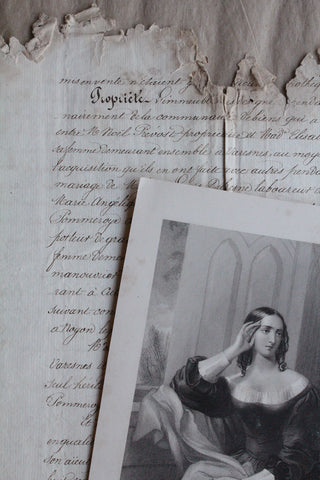 mis en vente n'étaient
Propriété. L'immeuble
nairement de la communauté de biens qui a
entre Mr Noël Prevost propriétaire et Made Elisa
sa femme demeurant ensemble à Varesnes, au moy
l'acquisition qu'ils en ont fait avec autres pend
mariage de laboureur d
Marie Angéliq
Pommeroye
porteur de gra
femme deme
manouvrier
rant à
suivant con
à Noyon le
Varesnes
seuil hérit
Pommeroy
Et
en qualité
son aïeu